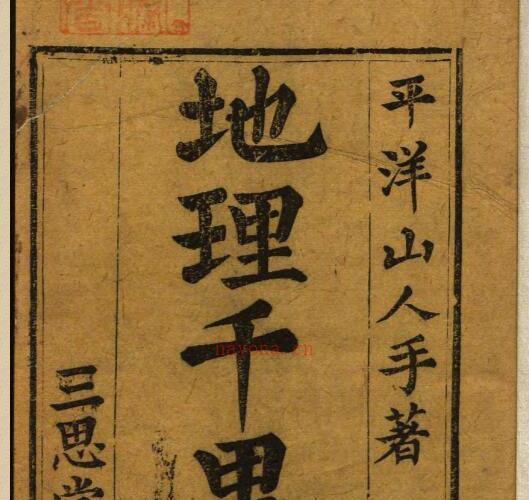 平洋山人手著
地理千里
三思堂
nayona.cn